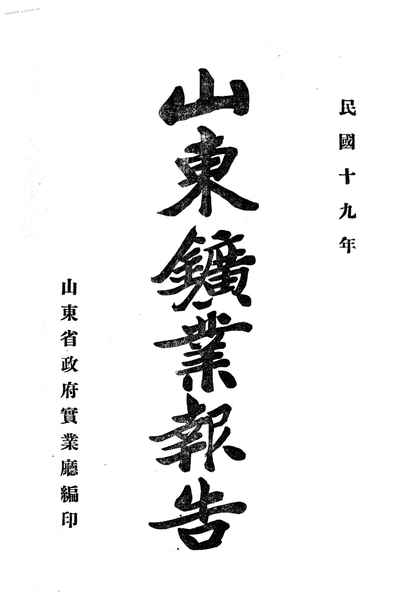 民國十九年
山東鑛業報告
山東省政府實業廳編印